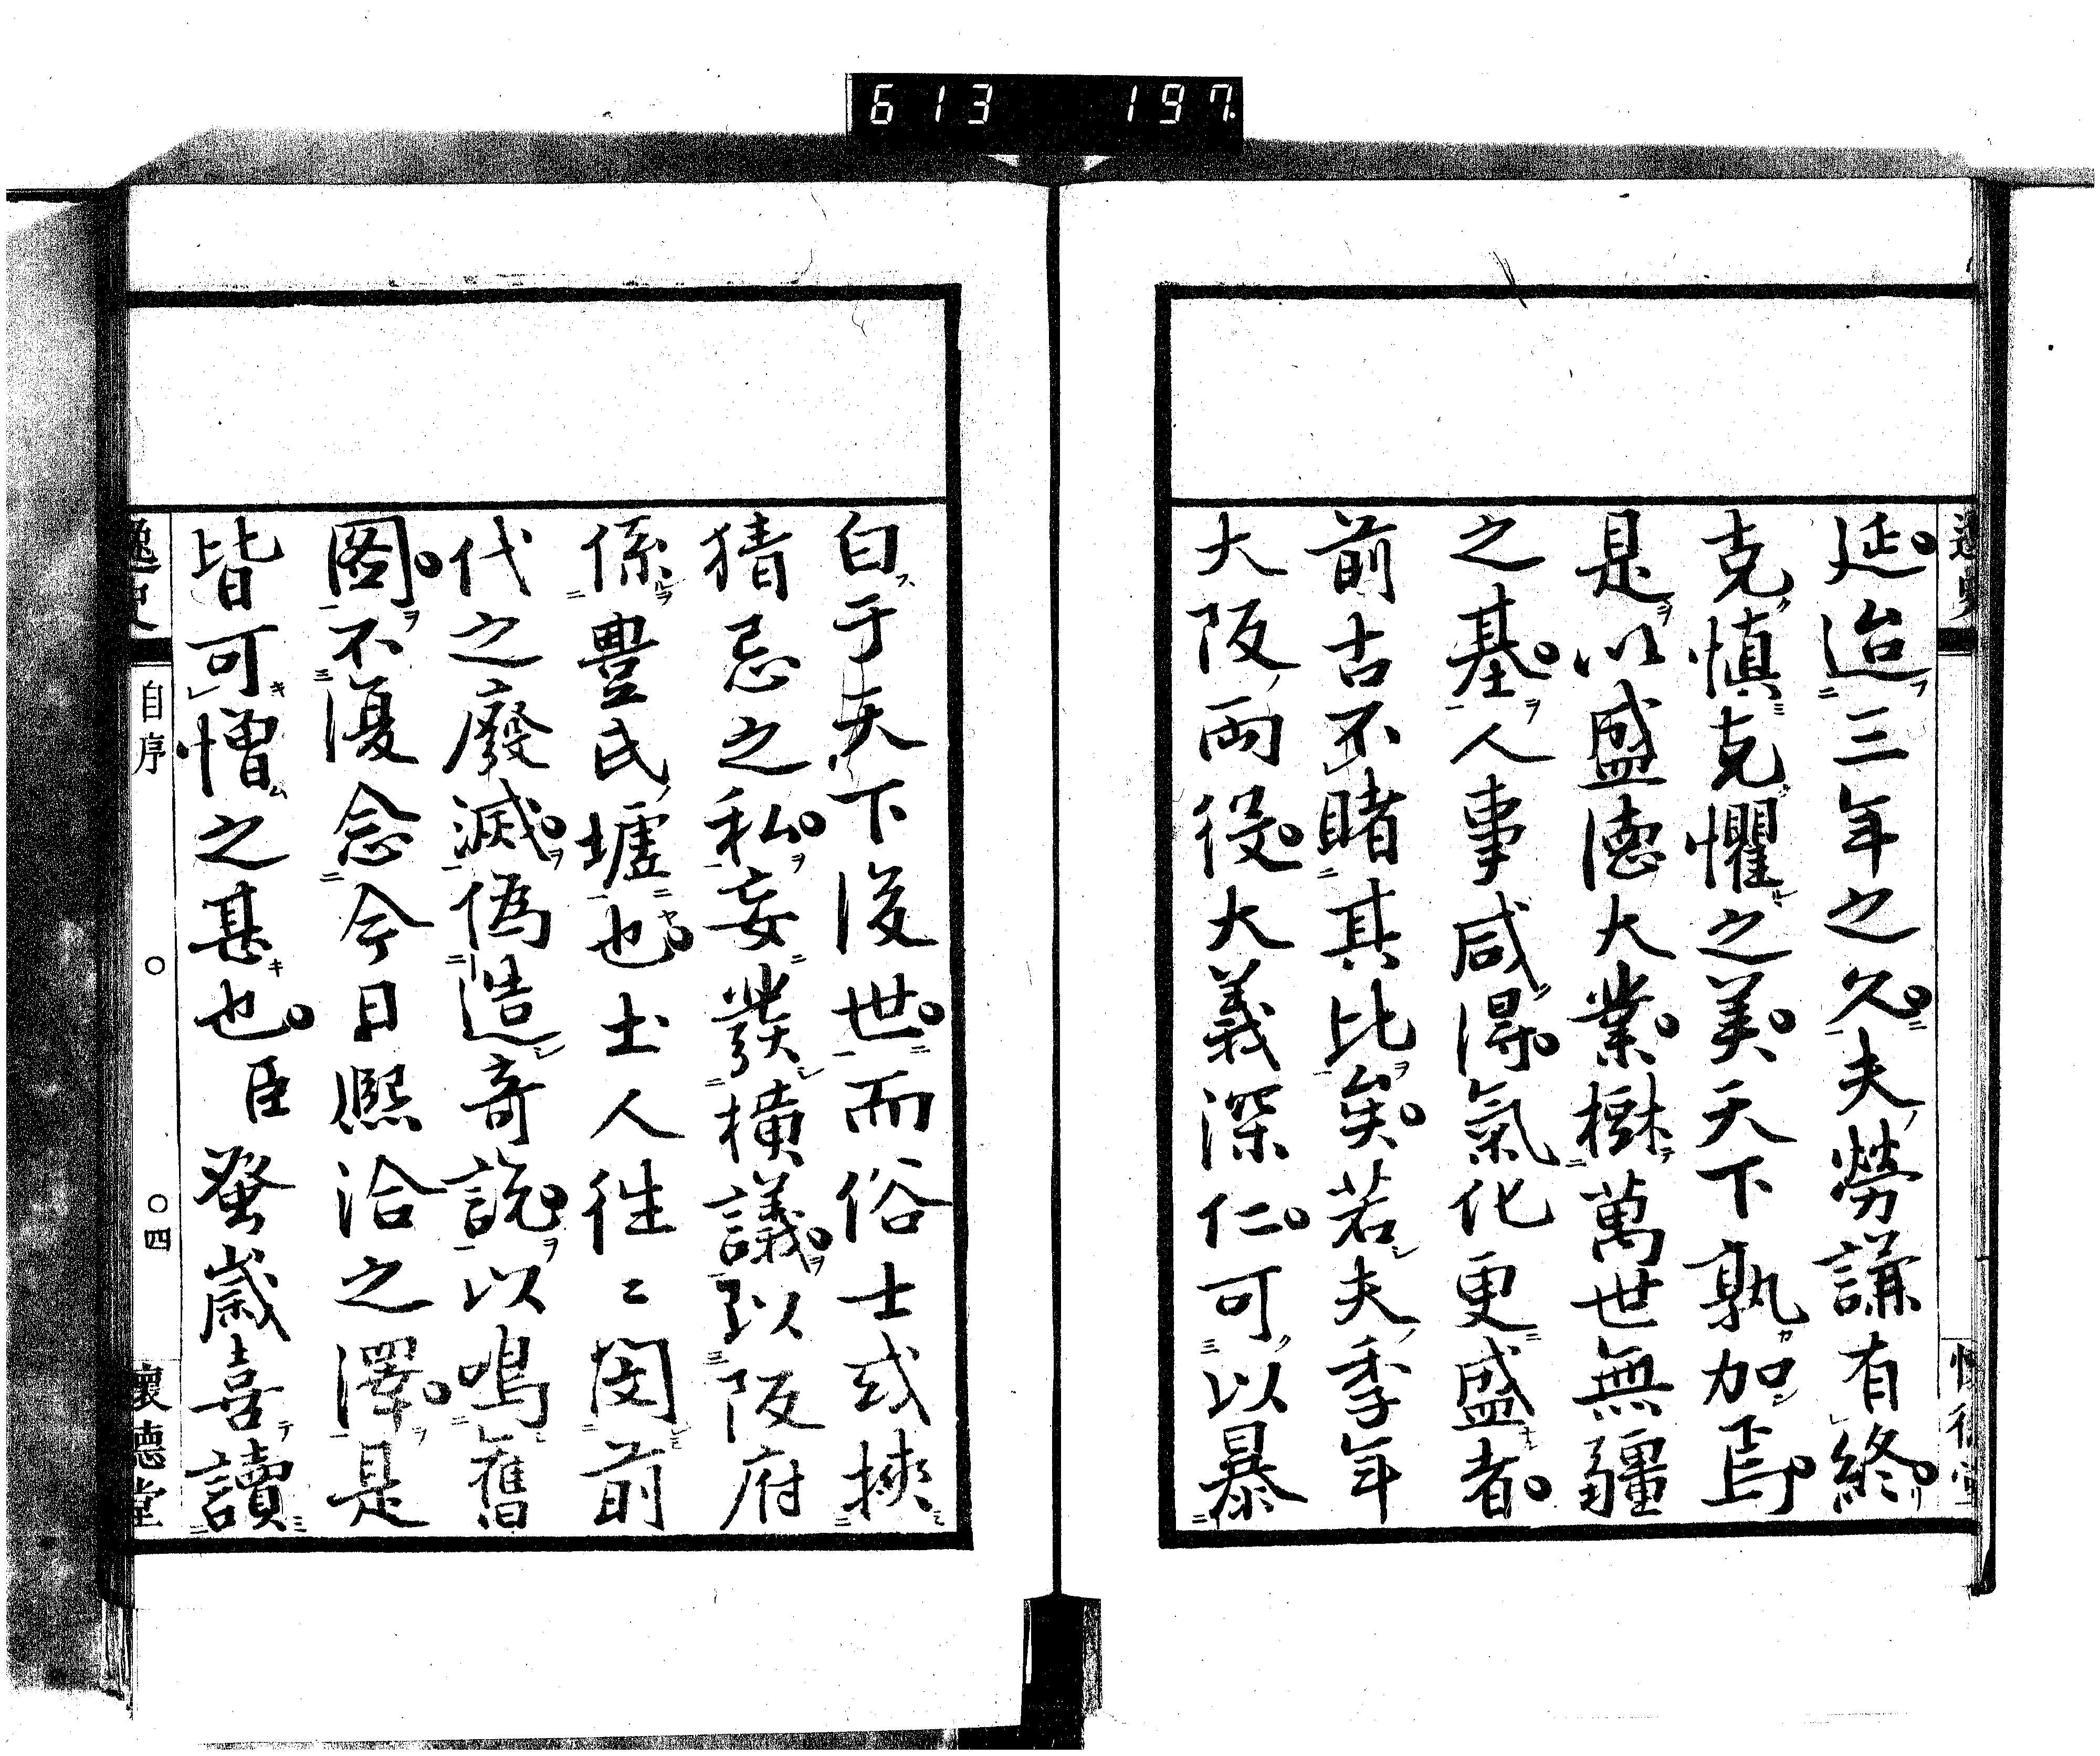 613 197
延迨三年之久夫勞謙有終
克慎克懼之美天下孰加焉
是以盛德大業樹萬世無疆
之基人事咸得氣化更盛者
前古不睹其比矣若夫季年
大阪兩役大義深仁可以暴
白于天下後世而俗士或挾
猜忌之私妄發橫議以阪府
係豐氏墟也士人往〻閔前
代之廢滅偽造奇說以鳴舊
圖不復念今日熙洽之澤是
皆可憎之甚也臣 蚤歲喜讀
逸史 自序 〇 〇四 懷德堂